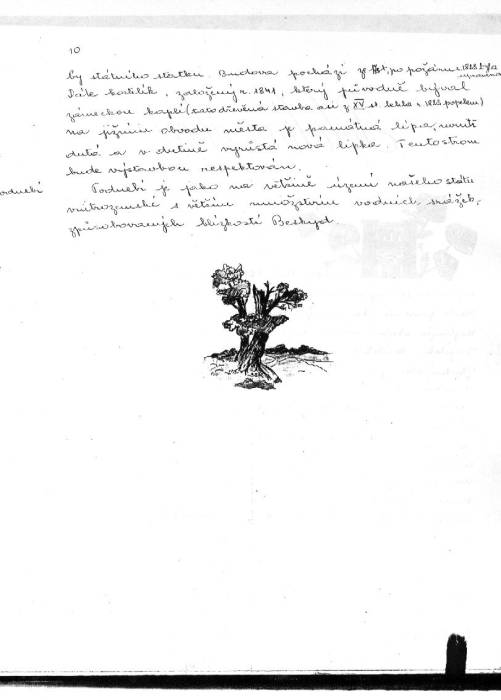 10
by státního statku. Budova pochází z po požáru r. 1828 byla
upravena
Dále kostelík, založený r. 1841, který původně býval
zámeckou kaplí (tato dřevěná stavba asi z XV st. lehla r. 1828 popelem)
na jižním obvodu města je památná lípa, uvnitř
dutá a v dutině vyrůstá nová lípka. Tento strom
bude výstavbou respektován.
Podnebí je jako na většině území našeho státu
vnitrozemské s větším množstvím vodních srážek,
způsobovaných blízkostí Beskyd.